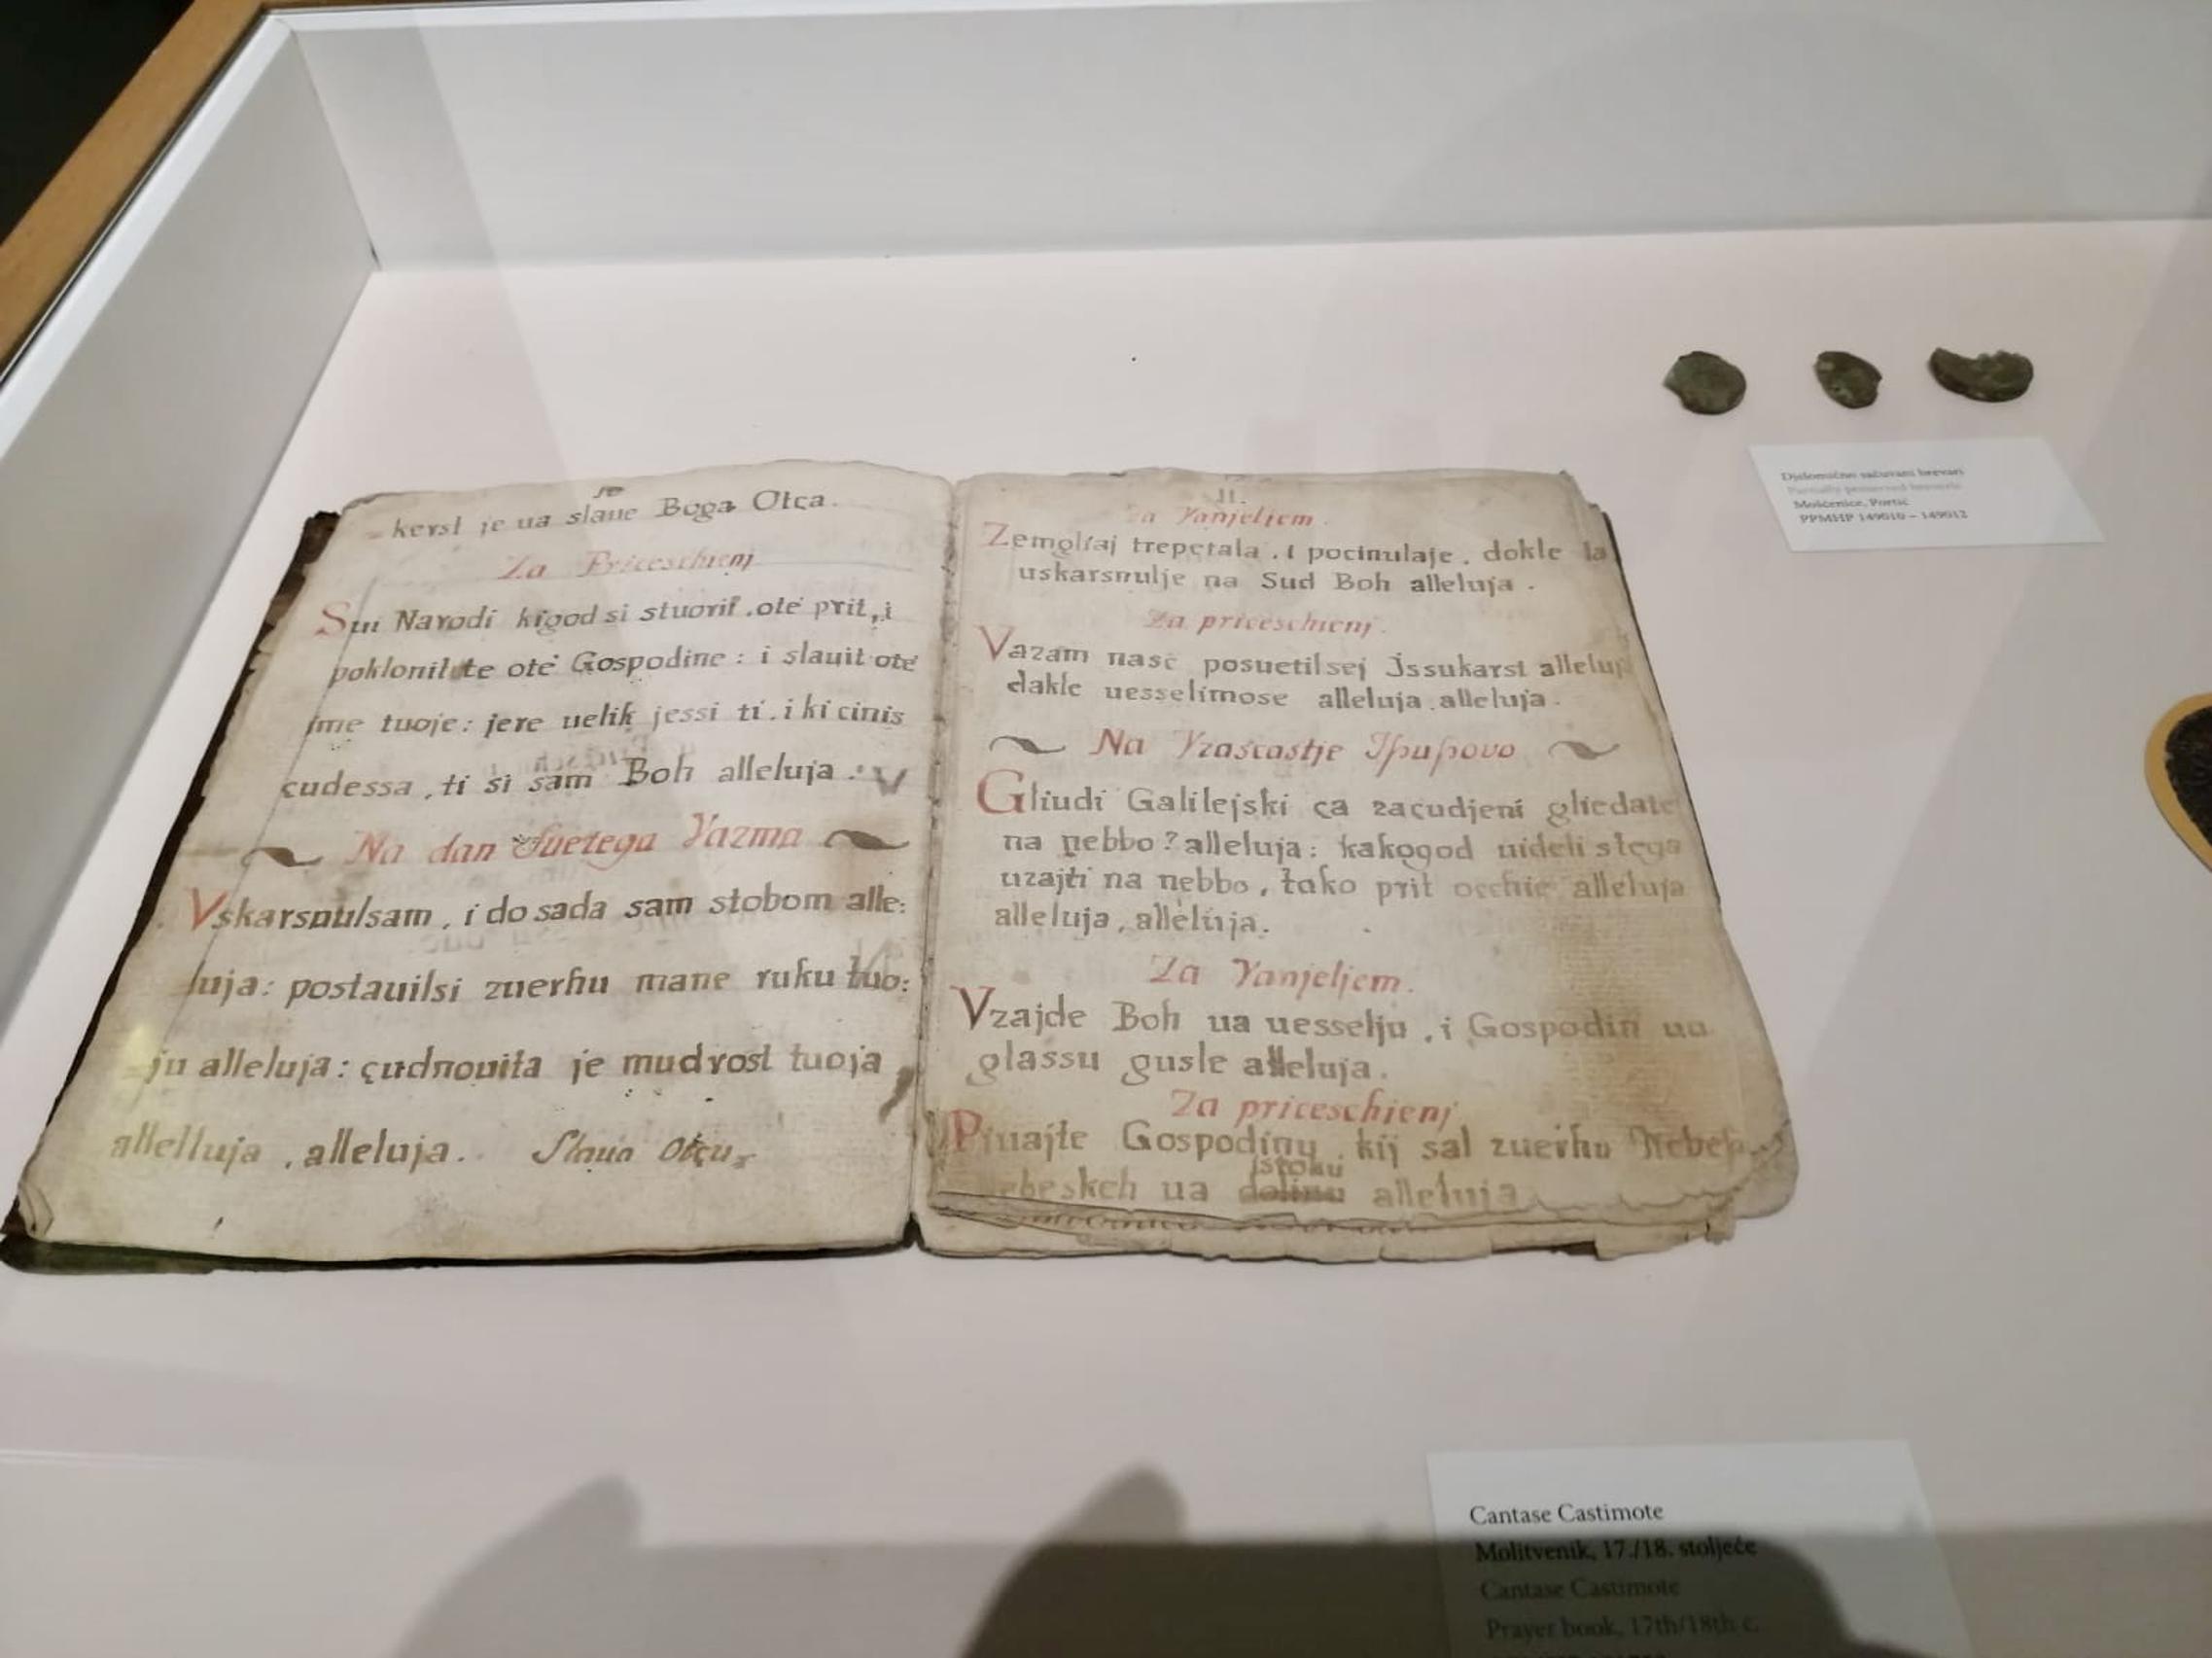 10
kerst je ua slaue Boga Otca.
Za Priceschienj
Sui Narodi kigod si stuorit .ote prit, i
poklonil te ote Gospodine : i slauit ote
ime tuoje: jere uelik jessi ti . i ki cinis
çudessa , ti si sam Boh alleluja .
Na dan Suetega Vazma
Vskarsnulsam , i do sada sam stobom alle:
luja: postauilsi zuerhu mane ruku tuo:
ju alleluja: çudnouita je mudrost tuoja
allelluja , alleluja. Slaua Otçu
11.
Za Vanjeljem.
Zemgliaj trepetala . i pocinulaje . dokle la
uskarsnulje na Sud Boh alleluja .
Za priceschienj.
Vazam nasc posuetilsej Jssukarst alleluj
dakle uesselimose alleluja . alleluja .
Na Vzascastje Ispusovo
Gliudi Galilejski ça zaçudjeni gliedate
na nebbo? alleluja: kakogod uideli stega
uzajti na nebbo, tako prit occhie alleluja
alleluja , alleluja.
Za Vanjeljem.
Vzajde Boh ua uesselju , i Gospodin ua
glassu gusle alleluja .
Za priceschienj
Piuajte Gospodinu . kij sal zuerhu Nebes
istoku
ebeskeh ua dolinu alleluja
Djelomično sačuvani brevari
Partially preserved breviaries
Mošćenice, Portić
PPMHP 149010 – 149012
Cantase Castimote
Molitvenik, 17./18. stoljeće
Cantase Castimote
Prayer book, 17th/18th c.